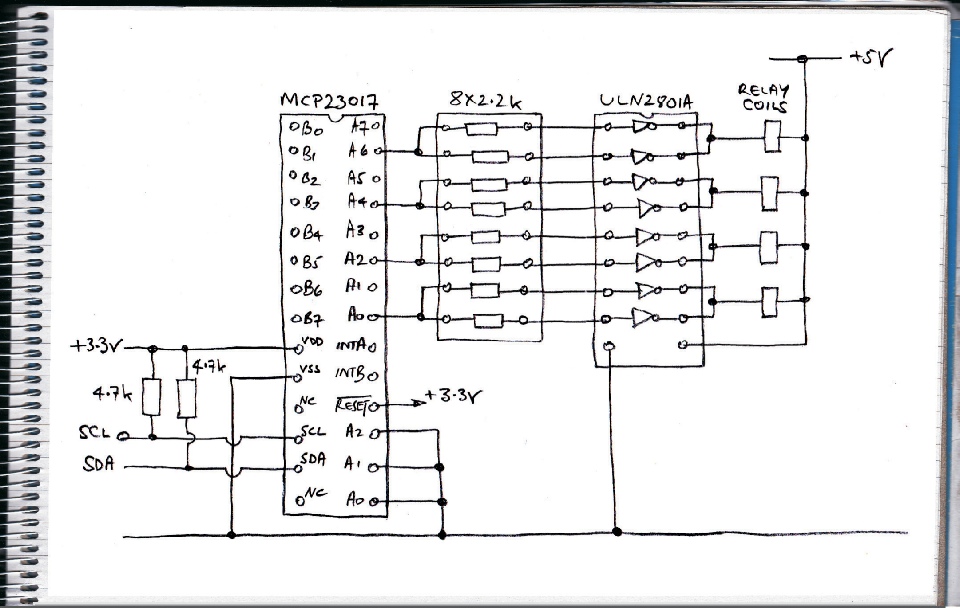 +5V
RELAY
COILS
MCP23017
8X2.2k
ULN2801A
B0 A7
B1 A6
B2 A5
B3 A4
B4 A3
B5 A2
B6 A1
B7 A0
+3.3V
VDD INTA
4.7k
VSS INTB
4.7k
NC RESET
+3.3V
SCL
SCL A2
SDA
SDA A1
NC A0